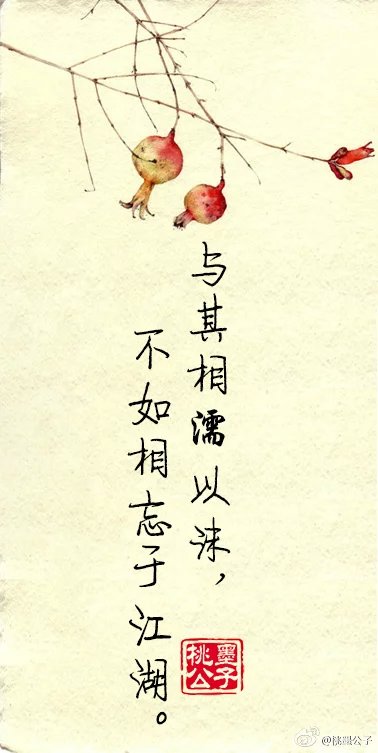 与其相濡以沫，
不如相忘于江湖。
桃墨
公子
@桃墨公子